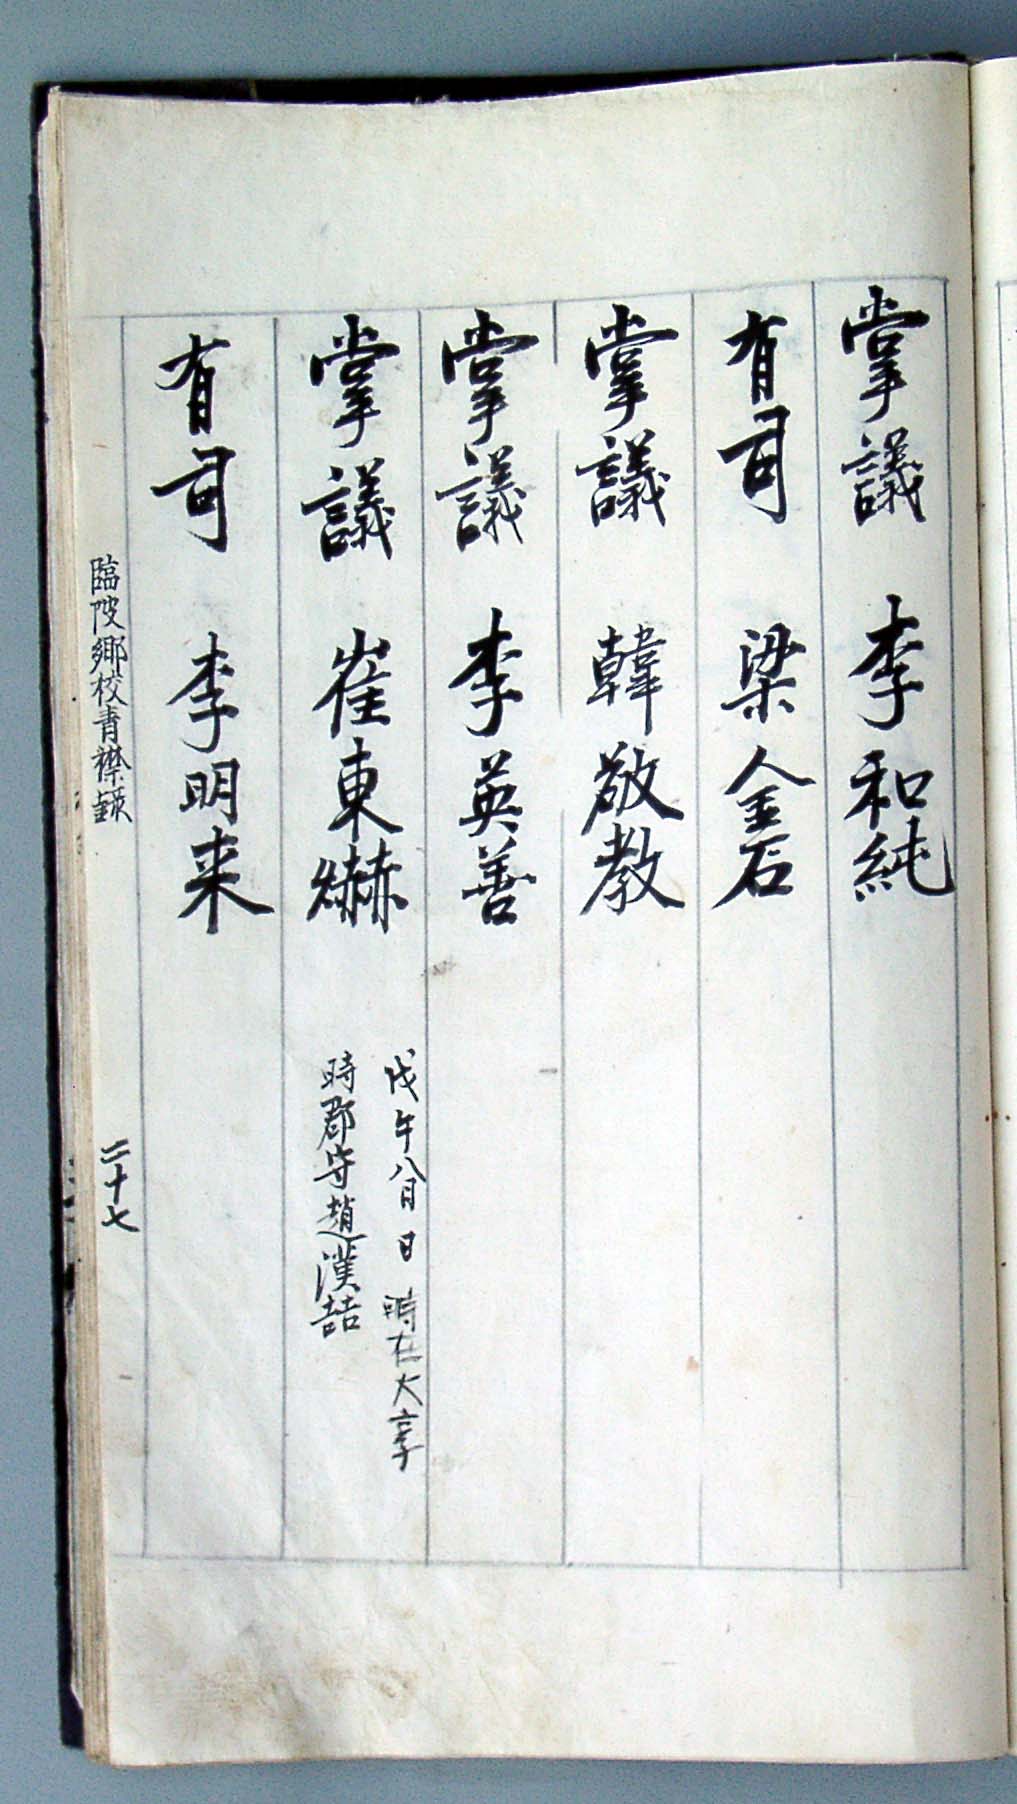 掌議 李和純
有司 梁金石
掌議 韓敬教
掌議 李英善
掌議 崔東爀 戊午八月 日 時在大享
時郡守趙漢喆
有司 李明来
臨陂鄉校青襟錄 二十七